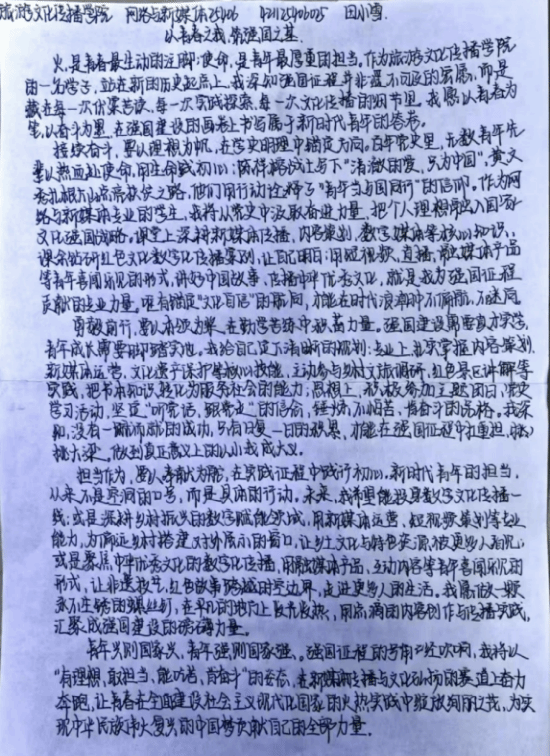 旅游文化传播学院 网络与新媒体25406 田小雪
以青春之我 筑强国之基
火,是青春最生动的注脚;使命,是青年最厚重的担当。作为旅游文化传播学院
的一名学子,站在新的历史起点上,我深知强国征程并非遥不可及的宏愿,而是
藏在每一次伏案苦读、每一次实践探索、每一次文化传播的细节里。我愿以青春为
笔,以奋斗为墨,在强国建设的画卷上书写属于新时代青年的答卷。
接续奋斗,要以理想为帆,在学史明理中锚定方向。百年党史里,无数青年先
辈以热血赴使命,用生命践初心:陈祥榕战士写下“清澈的爱,只为中国”,黄文
秀扎根乡山点亮脱贫之路,他们用行动诠释了“青年当与国同行”的信仰。作为网
络与新媒体专业的学生,我将从党史中汲取奋进力量,把个人理想融入国家
文化强国战略。课堂上深耕新媒体传播、内容策划、数字媒体等核心知识,
课余钻研红色文化数字化传播案例,让自己明白:用短视频、直播、融媒体产品
等青年喜闻乐见的形式,讲好中国故事、传播中华优秀文化,就是我为强国征程
贡献的专业力量。唯有锚定“文化自信”的航向,才能在时代浪潮中不偏航、不迷向。
勇毅前行,要以本领为桨,在勤学苦练中积蓄力量。强国建设需要真才实学,
青年成长需要脚踏实地。我给自己定下清晰的规划:专业上,扎实掌握内容策划、
新媒体运营、文化遗产保护等核心技能,主动参与乡村文旅调研、红色景区讲解等
实践,把书本知识转化为服务社会的能力;思想上,积极参加主题团日、党史
学习活动,坚定“听党话、跟党走”的信念,锤炼不怕苦、肯奋斗的品格。我深
知,没有一蹴而就的成功,只有日复一日的积累,才能在强国征程中扛重担、挑
大梁,做到真正意义上的从小我成大义。
担当作为,要以奉献为舵,在实践征程中践行初心。新时代青年的担当,
从来不是空洞的口号,而是具体的行动。未来,我希望能投身数字文化传播一
线:或是深耕乡村振兴的数字赋能领域,用新媒体运营、短视频策划等专业
能力,为偏远乡村搭建对外展示的窗口,让乡土文化与特色资源被更多人看见;
或是聚焦中华优秀文化的数字化传播,用融媒体产品、互动内容等青年喜闻乐见的
形式,让非遗技艺、红色故事跨越时空边界,走进更多人的生活。我愿做一颗
永不生锈的螺丝钉,在平凡的岗位上发光发热,用点滴的内容创作与传播实践,
汇聚成强国建设的磅礴力量。
青年兴则国家兴,青年强则国家强。强国征程的号角已经吹响,我将以
“有理想、敢担当、能吃苦、肯奋斗”的姿态,在新媒体传播与文化弘扬的赛道上奋力
奔跑,让青春在全面建设社会主义现代化国家的火热实践中绽放绚丽之花,为实
现中华民族伟大复兴的中国梦贡献自己的全部力量.